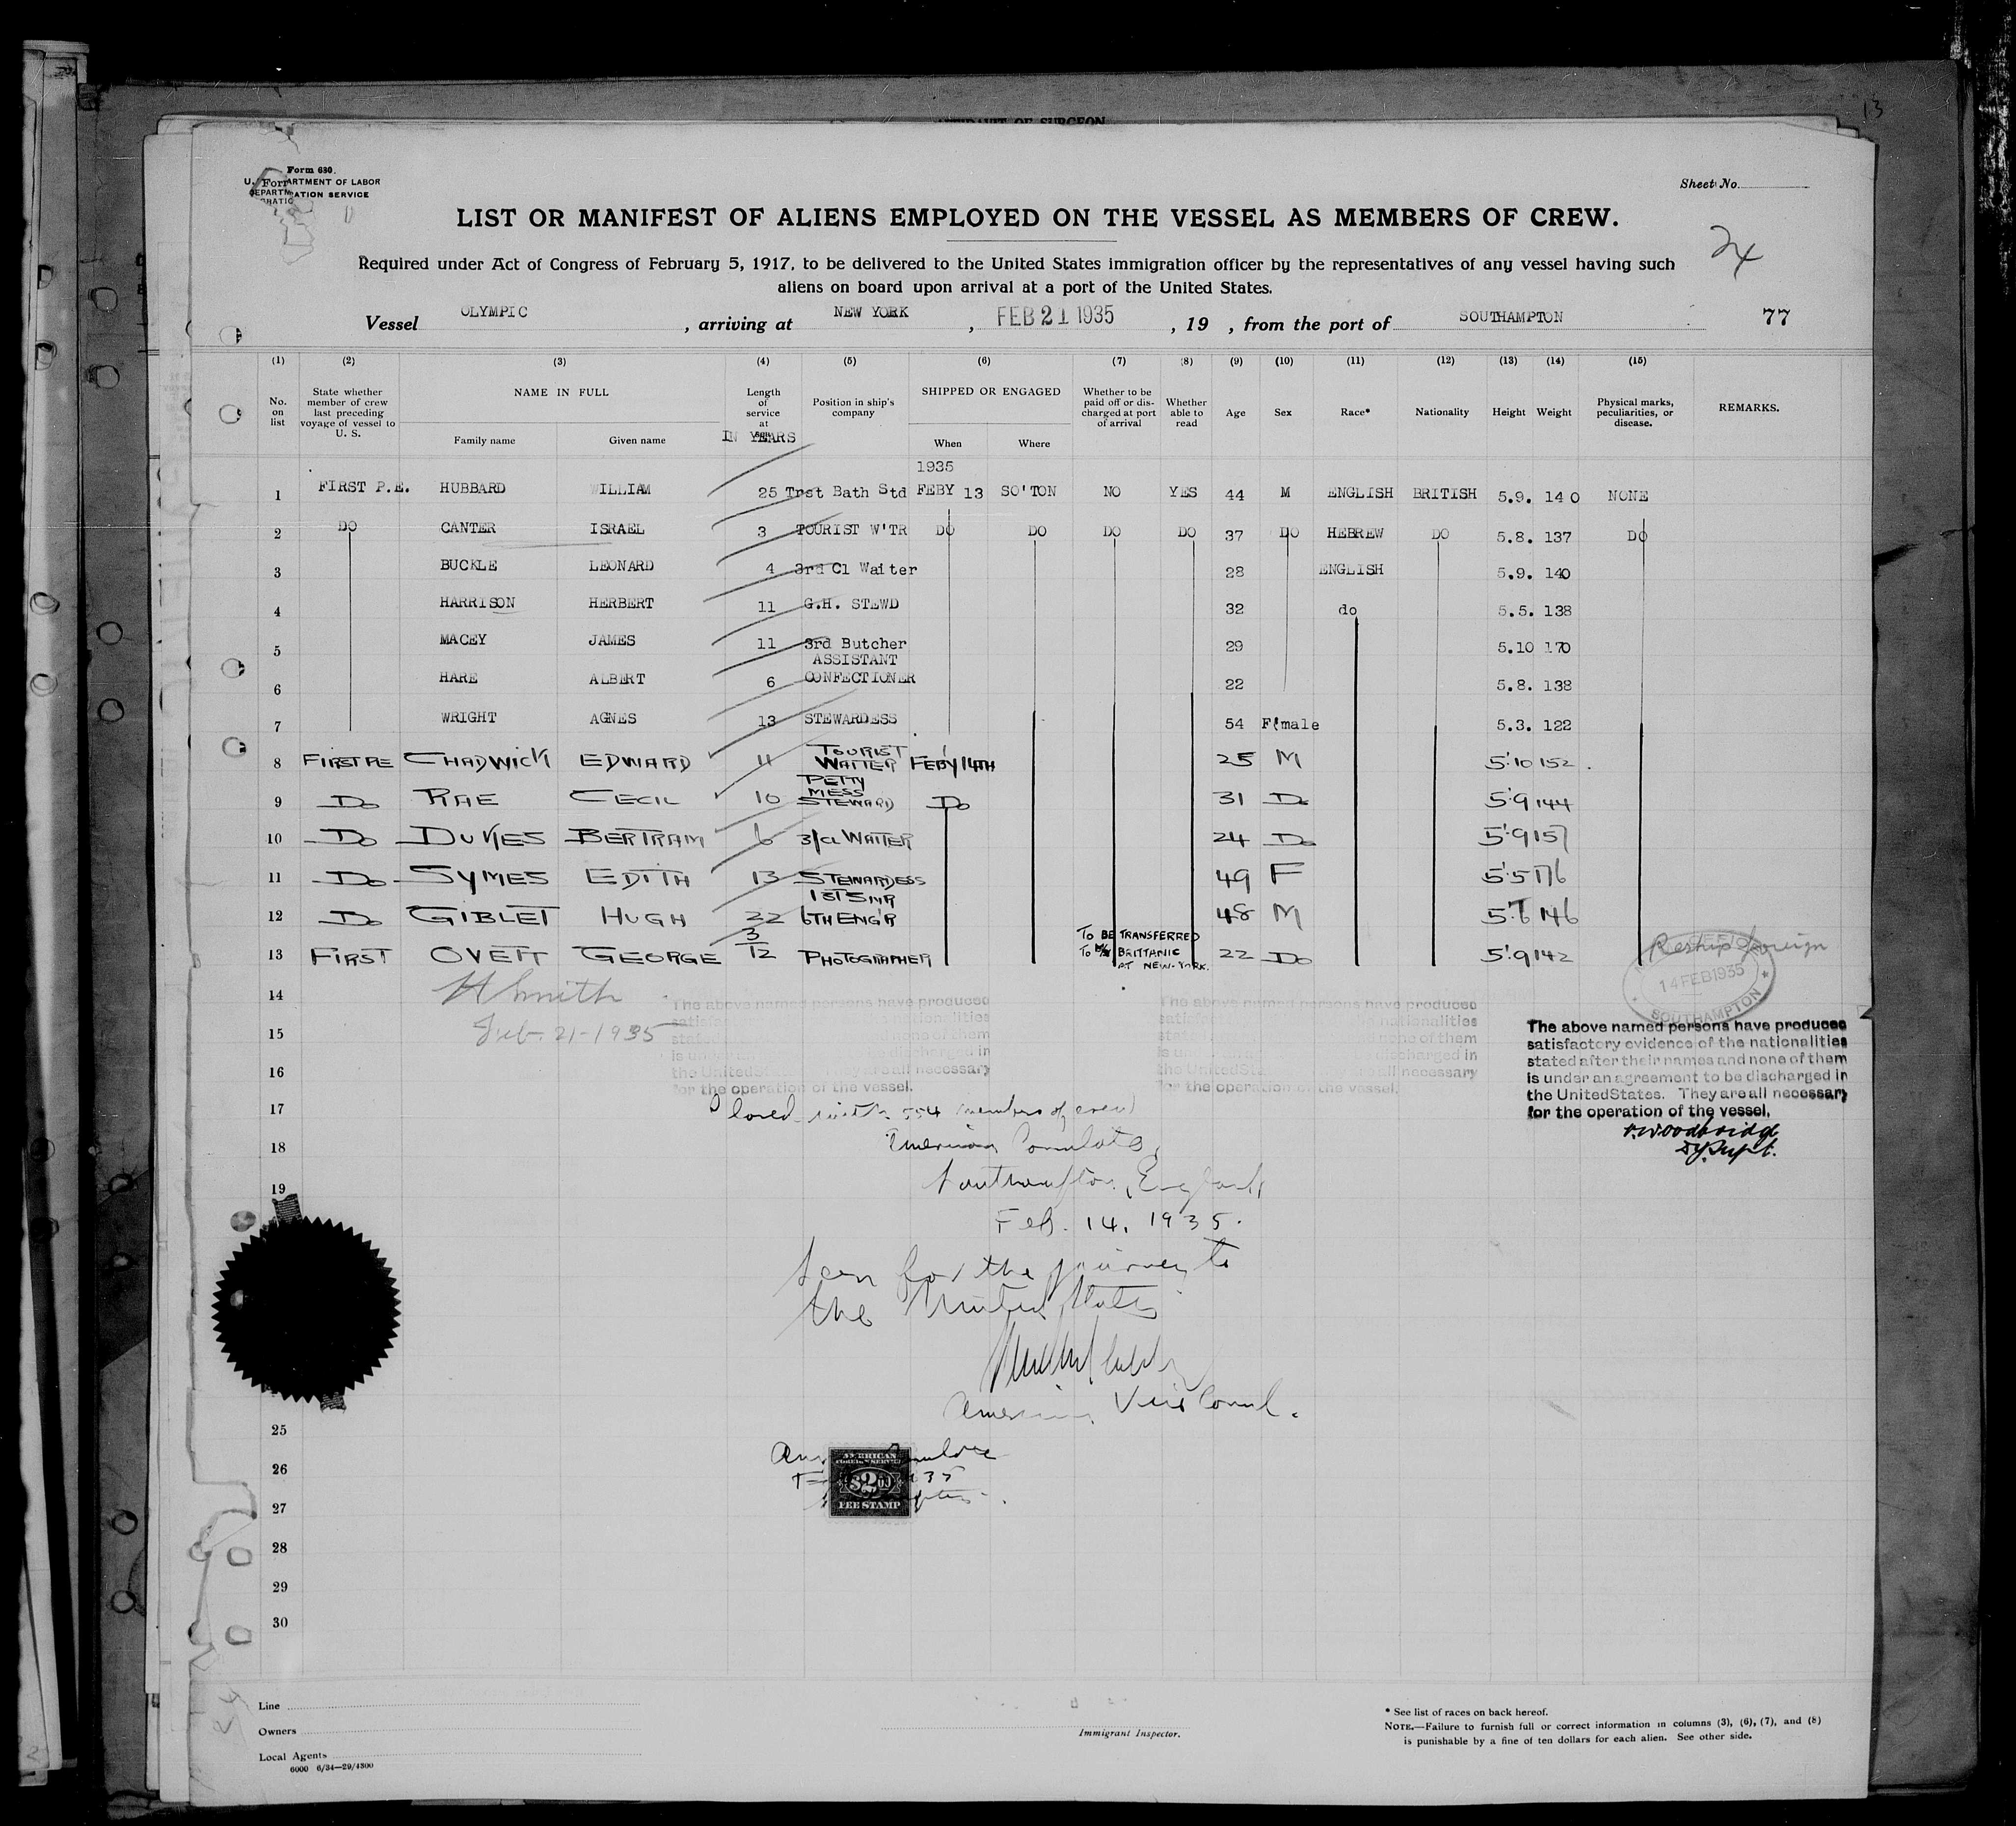 AFFIDAVIT OF SURGEON
13
Form 630.
U. ARTMENT OF LABOR
ATION SERVICE
Sheet No.
LIST OR MANIFEST OF ALIENS EMPLOYED ON THE VESSEL AS MEMBERS OF CREW.
Required under Act of Congress of February 5, 1917, to be delivered to the United States immigration officer by the representatives of any vessel having such
aliens on board upon arrival at a port of the United States.
Vessel OLYMPIC , arriving at NEW YORK , FEB 21 1935 , 19 , from the port of SOUTHAMPTON 77
(1) (2) (3) (4) (5) (6) (7) (8) (9) (10) (11) (12) (13) (14) (15)
No. on list State whether member of crew last preceding voyage of vessel to U. S. NAME IN FULL Family name Given name Length of service at sea IN YEARS Position in ship's company SHIPPED OR ENGAGED When Where Whether to be paid off or discharged at port of arrival Whether able to read Age Sex Race* Nationality Height Weight Physical marks, peculiarities, or disease. REMARKS.
1935
1 FIRST P.E. HUBBARD WILLIAM 25 Trst Bath Std FEBY 13 SO'TON NO YES 44 M ENGLISH BRITISH 5.9. 140 NONE
2 DO CANTER ISRAEL 3 TOURIST W'TR DO DO DO DO 37 DO HEBREW DO 5.8. 137 DO
3 BUCKLE LEONARD 4 3rd Cl Waiter 28 ENGLISH 5.9. 140
4 HARRISON HERBERT 11 G.H. STEWD 32 do 5.5. 138
5 MACEY JAMES 11 3rd Butcher 29 5.10 170
ASSISTANT
6 HARE ALBERT 6 CONFECTIONER 22 5.8. 138
7 WRIGHT AGNES 13 STEWARDESS 54 F(male 5.3. 122
8 FIRST PE CHADWICK EDWARD 11 TOURIST WAITER FEBY 14TH 25 M 5'.10 152.
9 DO RAE CECIL 10 PETTY MESS STEWARD DO 31 DO 5'.9 144
10 DO DUKES BERTRAM 6 3/CL WAITER 24 DO 5'.9 157
11 DO SYMES EDITH 13 STEWARDESS 49 F 5'.5 176
12 DO GIBLET HUGH 22 1ST SNR 6TH ENG'R 48 M 5'.6 146
13 FIRST OVETT GEORGE 3/12 PHOTOGRAPHER TO BE TRANSFERRED TO M/V BRITTANIC AT NEW-YORK. 22 DO 5'.9 142 Reship foreign
14 H Smith
14 FEB 1935
SOUTHAMPTON
15 Feb. 21-1935
The above named persons have produced
satisfactory evidence of the nationalities
stated after their names and none of them
is under an agreement to be discharged in
the United States. They are all necessary
for the operation of the vessel.
16
17 Closed with 554 members of crew
18 American Consulate,
19 Southampton, England,
Feb. 14, 1935.
Seen for the journey to
the United States
American Vice Consul.
25
26
27
AMERICAN
FOREIGN SERVICE
$2.00
FEE STAMP
28
29
30
Line
Owners
Local Agents
6000 6/34—29/4300
Immigrant Inspector.
* See list of races on back hereof.
NOTE.—Failure to furnish full or correct information in columns (3), (6), (7), and (8)
is punishable by a fine of ten dollars for each alien. See other side.